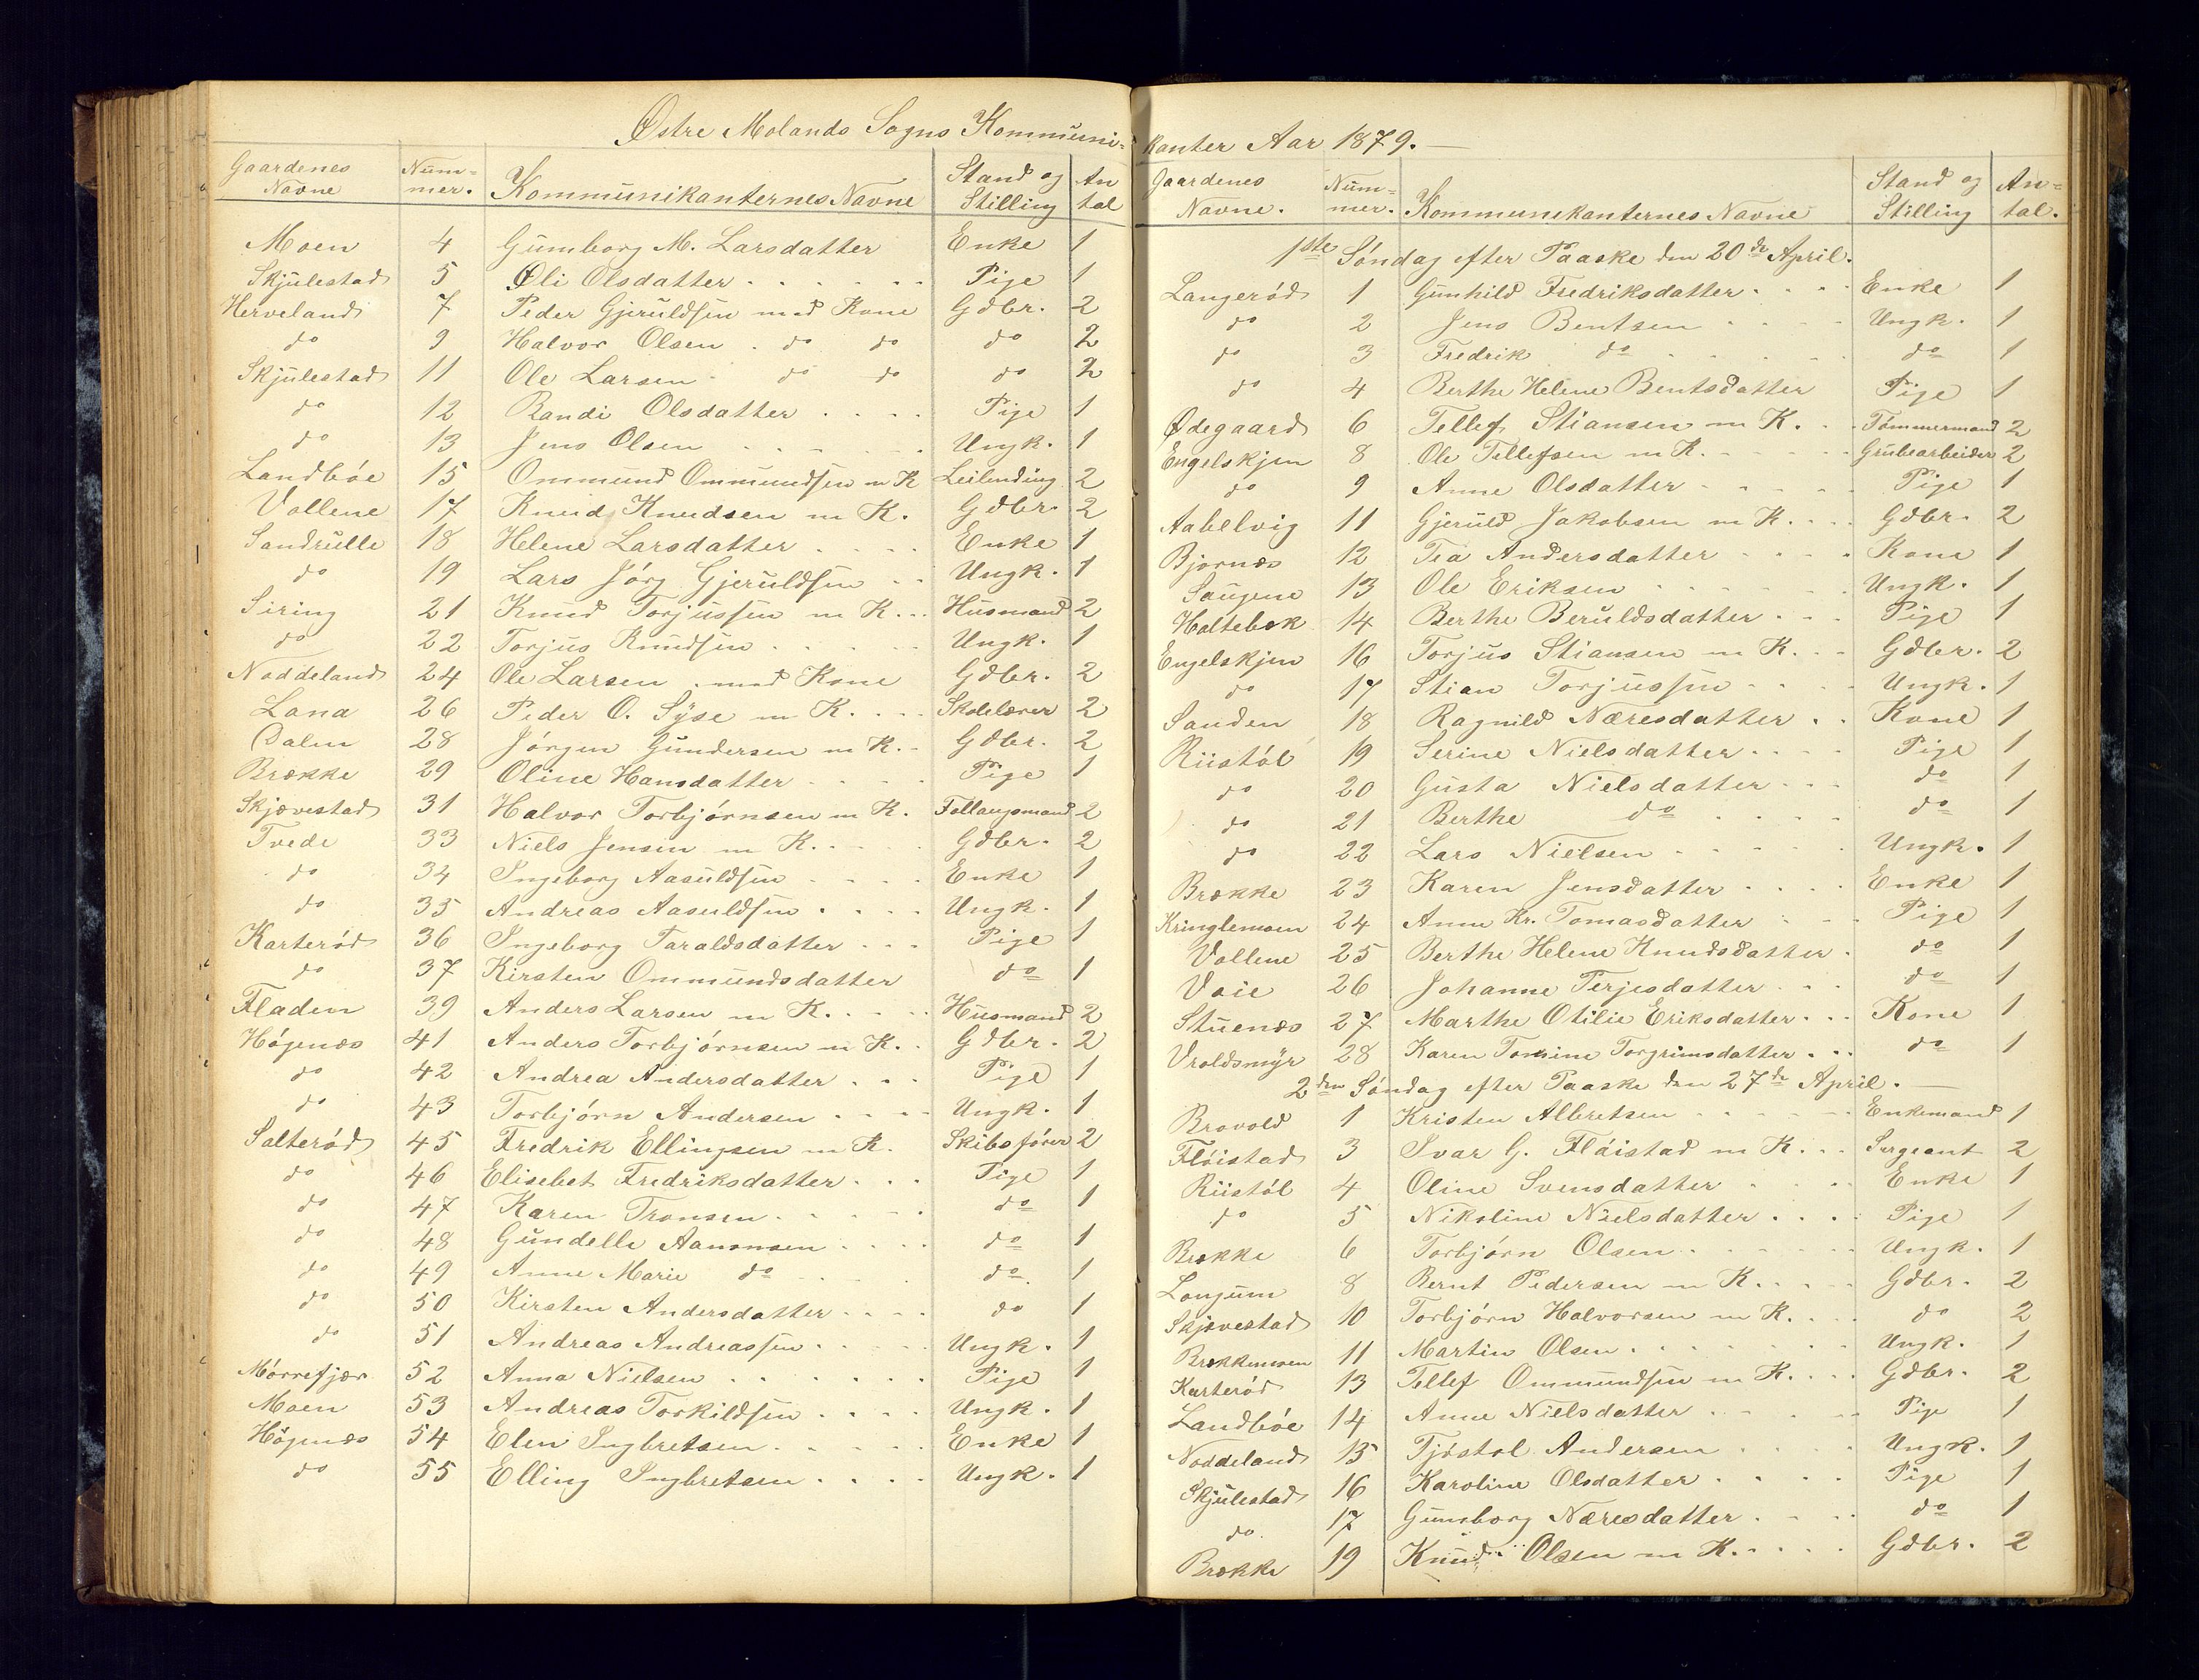 Østre Molands Sogns Kommuni-
Gaardenes Navne Num-mer. Kommunikanternes Navne Stand og Stilling An tal
Moen 4 Gunborg M. Larsdatter Enke 1
Skjulestad 5 Øli Olsdatter . . . . . . Pige 1
Herveland 7 Peder Gjeruldsen med Kone Gdbr. 2
do 9 Halvor Olsen . do do do 2
Skjulestad 11 Ole Larsen - do do do 2
do 12 Randi Olsdatter . . . . Pige 1
do 13 Jens Olsen . . . . . . Ungk. 1
Landbøe 15 Ommund Ommundsen m K Leilending 2
Vollene 17 Knud Knudsen m K. Gdbr. 2
Sandrulle 18 Helene Larsdatter . . . . Enke 1
do 19 Lars Jørg. Gjeruldsen . . Ungk. 1
Siring 21 Knud Torjussen m K. . . Husmand 2
do 22 Torjus Knudsen . . . . . Ungk. 1
Noddeland 24 Ole Larsen . med Kone Gdbr. 2
Lana 26 Peder O. Syse m K. . . . Skolelærer 2
Dalen 28 Jørgen Gundersen m K. . Gdbr. 2
Brække 29 Oline Hansdatter . . . . Pige 1
Skjævestad 31 Halvor Torbjørnsen m K. Follaugsmand 2
Tvede 33 Niels Jensen m K. . . . . Gdbr. 2
do 34 Ingeborg Aasuldsen . . . . Enke 1
do 35 Andreas Aasuldsen . . . . Ungk. 1
Karterød 36 Ingeborg Taraldsdatter . . . Pige 1
do 37 Kirsten Ommundsdatter do 1
Fladen 39 Anders Larsen m K. . . . . Husmand 2
Høgenæs 41 Anders Torbjørnsen m K. . Gdbr. 2
do 42 Andrea Andersdatter . . . Pige 1
do 43 Torbjørn Andersen . . . . Ungk. 1
Salterød 45 Fredrik Ellingsen m K. Skibsfører 2
do 46 Elisebet Fredriksdatter . . . Pige 1
do 47 Karen Tronsen . . . . . do 1
do 48 Gundelle Aanonsen . . . . do 1
do 49 Anne Marie do . . . . do. 1
do 50 Kirsten Andersdatter . . . . do 1
do 51 Andreas Andreassen . . . . . Ungk. 1
Mørrefjær 52 Anna Nielsen . . . . . . Pige 1
Moen 53 Andreas Torkildsen . . . . Ungk. 1
Høgenæs 54 Elen Ingbretsen . . . . . Enke 1
do 55 Elling Ingbretsen . . . . Ungk. 1
kanter Aar 1879. —
Gaardenes Navne. Num-mer. Kommunekanternes Navne Stand og Stilling An-tal.
1ste Søndag efter Paaske den 20de April.
Langerød 1 Gunhild Fredriksdatter . . . . Enke 1
do 2 Jens Bentsen . . . . Ungk. 1
do 3 Fredrik do . . . . . do 1
do 4 Berthe Helene Bentsdatter Pige 1
Ødegaard 6 Tellef Stiansen m K. . . Tømmermand 2
Engelskjen 8 Ole Tellefsen m K. . . . . . Grubearbeider 2
do 9 Anne Olsdatter . . . . . Pige 1
Aabelvig 11 Gjeruld Jakobsen m K. . . . Gdbr. 2
Bjornæs 12 Tea Andersdatter . . . . Kone 1
Saugene 13 Ole Eriksen . . . . . . Ungk. 1
Holtebek 14 Berthe Beruldsdatter . . . Pige 1
Engelskjen 16 Torjus Stiansen m K. . . Gdbr. 2
do 17 Stian Torjussen . . . . Ungk. 1
Sanden 18 Ragnild Næresdatter . . Kone 1
Riistøl 19 Serine Nielsdatter . . . . Pige 1
do 20 Gusta Nielsdatter . . . do 1
do 21 Berthe do . . . . do 1
do 22 Lars Nielsen . . . . . Ungk. 1
Brække 23 Karen Jensdatter . . . . Enke 1
Kringlemoen 24 Anne Kr. Tomasdatter . . . Pige 1
Vollene 25 Berthe Helene Knudsdatter . do 1
Vaie 26 Johanne Terjesdatter . . . do 1
Stuenæs 27 Marthe Otilie Eriksdatter . . . Kone 1
Vroldsmyr 28 Karen Tomine Torgrimsdatter . . . do 1
2den Søndag efter Paaske den 27de April. —
Brovold 1 Kristen Albretsen . . . . . . Enkemand 1
Fløistad 3 Ivar G. Fløistad m K. . . Sergeant 2
Riistøl 4 Oline Svensdatter . . . . Enke 1
do 5 Nikoline Nielsdatter . . . . Pige 1
Brække 6 Torbjørn Olsen . . . . . . Ungk. 1
Longum 8 Bernt Pedersen m K. . . . . Gdbr. 2
Skjævestad 10 Torbjørn Halvorsen m K. . . . do 2
Brækkemoen 11 Martin Olsen . . . . . . . Ungk. 1
Karterød 13 Tellef Ommundsen m K. . . . Gdbr. 2
Landbøe 14 Anne Nielsdatter . . . . . Pige 1
Noddeland 15 Tjøstol Andersen . . . . Ungk. 1
Skjulestad 16 Karoline Olsdatter . . . . Pige 1
do. 17 Gunborg Næresdatter . . . . do 1
Brække 19 Knud Olsen m K. . . . . Gdbr. 2